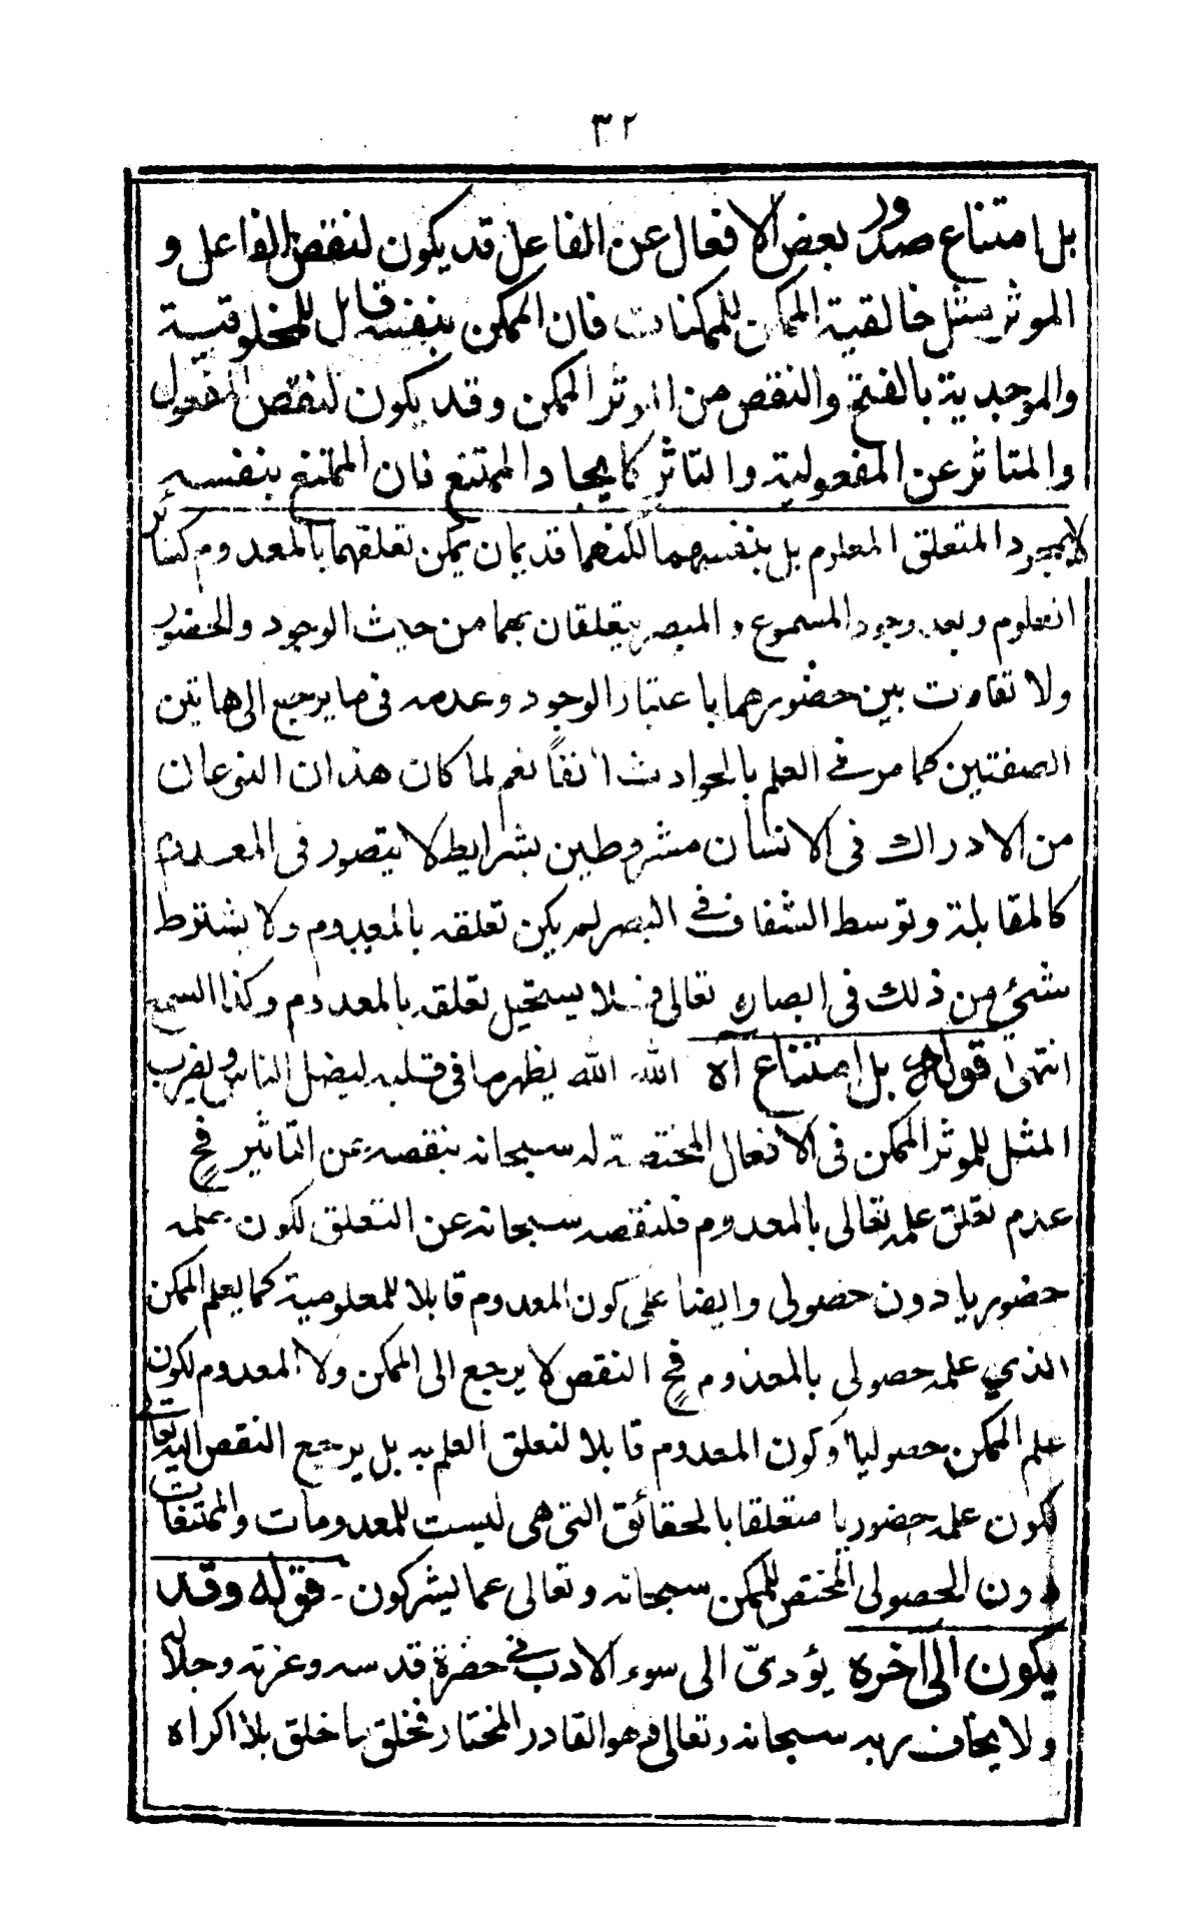 ٣٢
بل امتناع صدور بعض الافعال عن الفاعل قد يكون لنقص الفاعل و
الموثر مثل خالقية الممكن للممكنات فان الممكن بنفسه قابل للمخلوقية
والموجدية بالفتح والنقص من الموثر الممكن وقد يكون لنقص المفعول
والمتاثر عن المفعولية والتاثر كايجاد الممتنع فان الممتنع بنفسه
لا بمجرد المتعلق المعلوم بل بنفسهما لكنهما قديمان يمكن تعلقهما بالمعدوم كسائر
المعلوم وبعد وجود المسموع والمبصر يتعلقان بهما من حيث الوجود والحضور
ولا تفاوت بين حضورهما باعتبار الوجود وعدمه فى ما يرجع الى هاتين
الصفتين كما مر فى العلم بالحوادث انفاً نعم لما كان هذان النوعان
من الادراك فى الانسان مشروطين بشرايط لا يتصور فى المعدوم
كالمقابلة وتوسط الشفاف فى البصر لم يكن تعلقه بالمعدوم ولا يشترط
شئ من ذلك فى ابصاره تعالى فلا يستحيل تعلقه بالمعدوم وكذا السمع
انتهى قوله بل امتناع اه الله الله يظهر ما فى قلبه ليضل الناس ويضرب
المثل للموثر الممكن فى الافعال المختصة له سبحانه بنقصه عن التاثير فح
عدم تعلق علمه تعالى بالمعدوم فلنقصه سبحانه عن التعلق لكون علمه
حضوريا دون حصولى وايضا على كون المعدوم قابلا للمعلومية كما يعلم الممكن
الذي علمه حصولى بالمعدوم فح النقص لا يرجع الى الممكن ولا المعدوم لكون
علم الممكن حصوليا وكون المعدوم قابلا لتعلق العلم به بل يرجع النقص اليه تعالى
لكون علمه حضوريا متعلقا بالحقائق التى هى ليست للمعدومات والممتنعات
دون الحصولى المختص للممكن سبحانه وتعالى عما يشركون ـ قوله وقد
يكون الى اخره يؤدىّ الى سوء الادب فى حضرة قدسه وعزته وجلاله
ولا يخاف ربه سبحانه وتعالى فهو القادر المختار فخلق ما خلق بلا اكراه